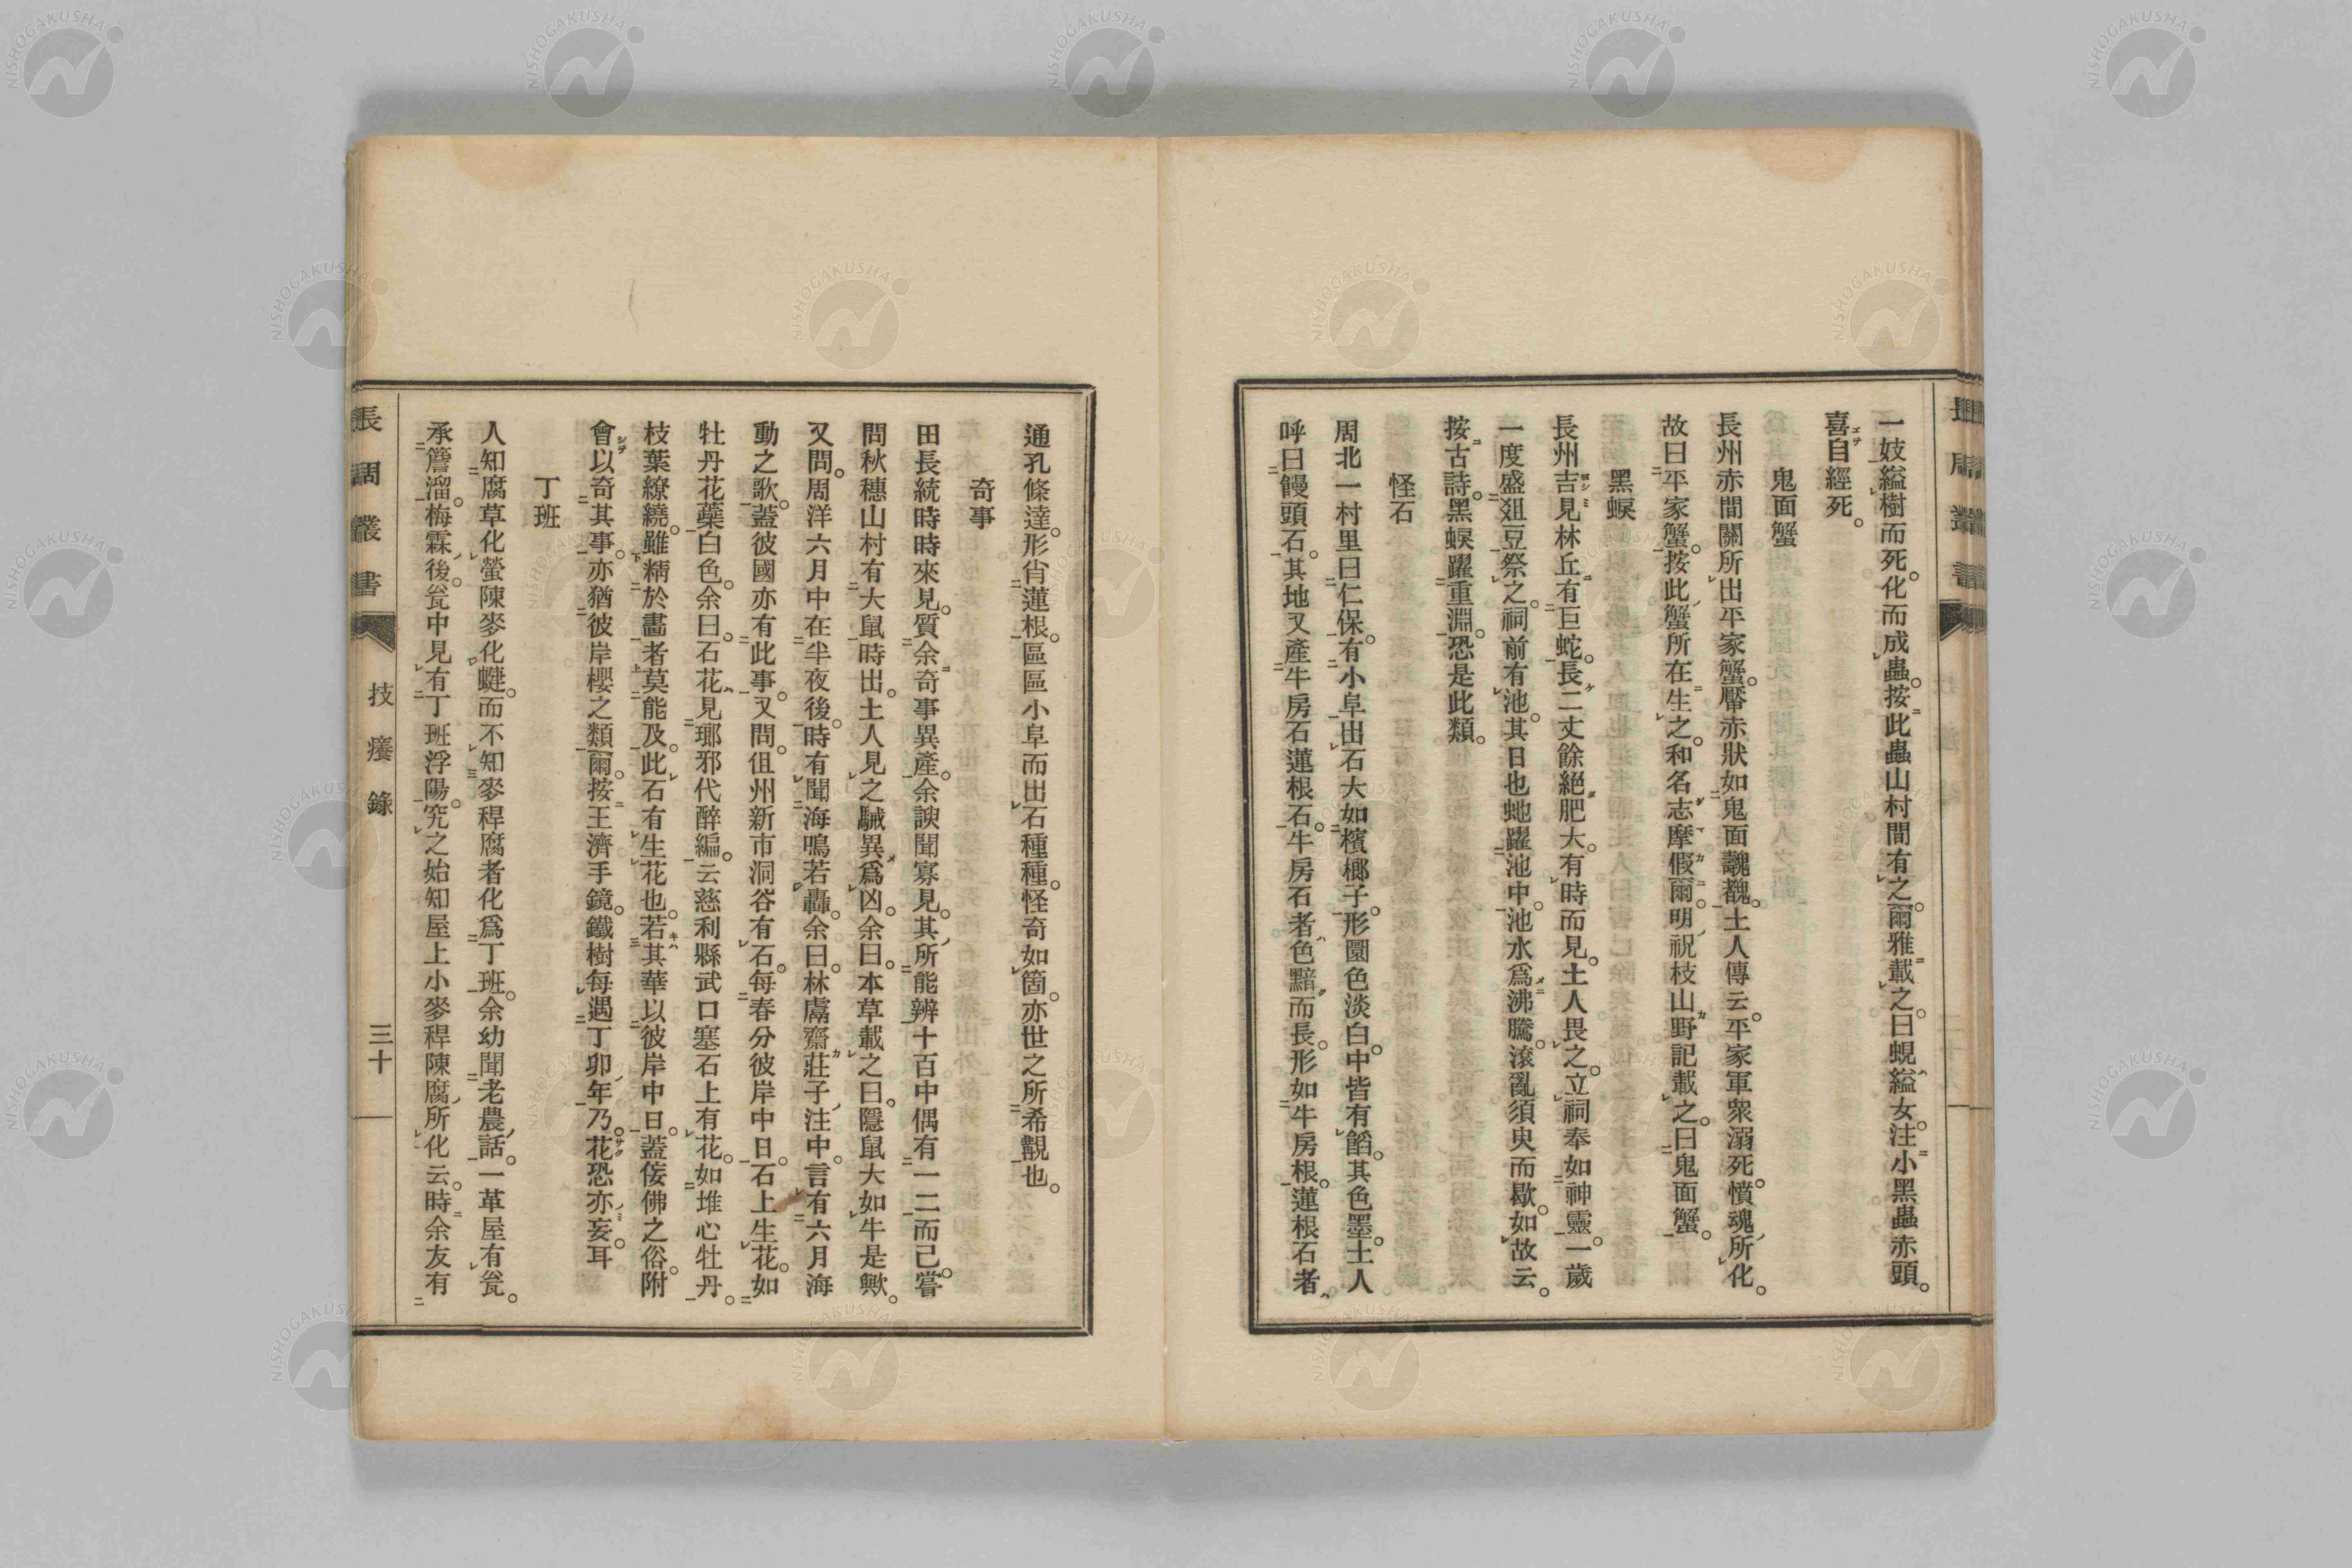 一妓縊樹而死。化而成蟲。按此蟲山村間有之。爾雅載之。曰蜆縊女。注小黑蟲赤頭。
喜自經死。
鬼面蟹
長州赤間關所出平家蟹。殼赤狀如鬼面。土人傳云。平家軍衆溺死。憤魂所化。
故曰平家蟹。按此蟹所在生之。和名志摩假爾。明祝枝山野記載之。曰鬼面蟹。
黑蜧
長州吉見林丘有巨蛇。長二丈餘絕肥大。有時而見。土人畏之。立祠奉如神靈。一歲
一度盛俎豆祭之。祠前有池。其日也虵躍池中。池水爲沸騰。滾亂須臾而歇。如故云。
按古詩。黑蜧躍重淵。恐是此類。
怪石
周北一村里曰仁保。有小阜出石大如檳榔子。形圜色淡白。中皆有餡。其色墨。土人
呼曰饅頭石。其地又產牛房石蓮根石。牛房石者色黯而長。形如牛房根。蓮根石者
通孔條達。形肖蓮根。區區小阜而出石種種。怪奇如箇。亦世之所希覯也。
奇事
田長統時時來見。質余奇事異產。余諛聞寡見。其所能辨十百中偶有一二而已。嘗
問秋穗山村有大鼠時出。土人見之駴異爲凶。余曰。本草載之曰。隱鼠大如牛是歟。
又問。周洋六月中在半夜後。時有聞海鳴若轟。余曰。林鬳齋莊子注中。言有六月海
動之歌。蓋彼國亦有此事。又問。但州新市洞谷有石。每春分彼岸中日。石上生花。如
牡丹花蘂白色。余曰。石花見瑯邪代醉編。云慈利縣武口塞石上有花。如堆心牡丹。
枝葉繚繞。雖精於畵者莫能及。此石有生花也。若其華以彼岸中日。蓋佞佛之俗。附
會以奇其事。亦猶彼岸櫻之類爾。按王濟手鏡。鐵樹每遇丁卯年乃花。恐亦妄耳
丁班
人知腐草化螢陳麥化蝶。而不知麥稈腐者化爲丁班。余幼聞老農話。一革屋有瓮。
承簷溜。梅霖後。瓮中見有丁班浮陽。究之始知屋上小麥稈陳腐所化云。時余友有
長周叢書
技癢錄
三十